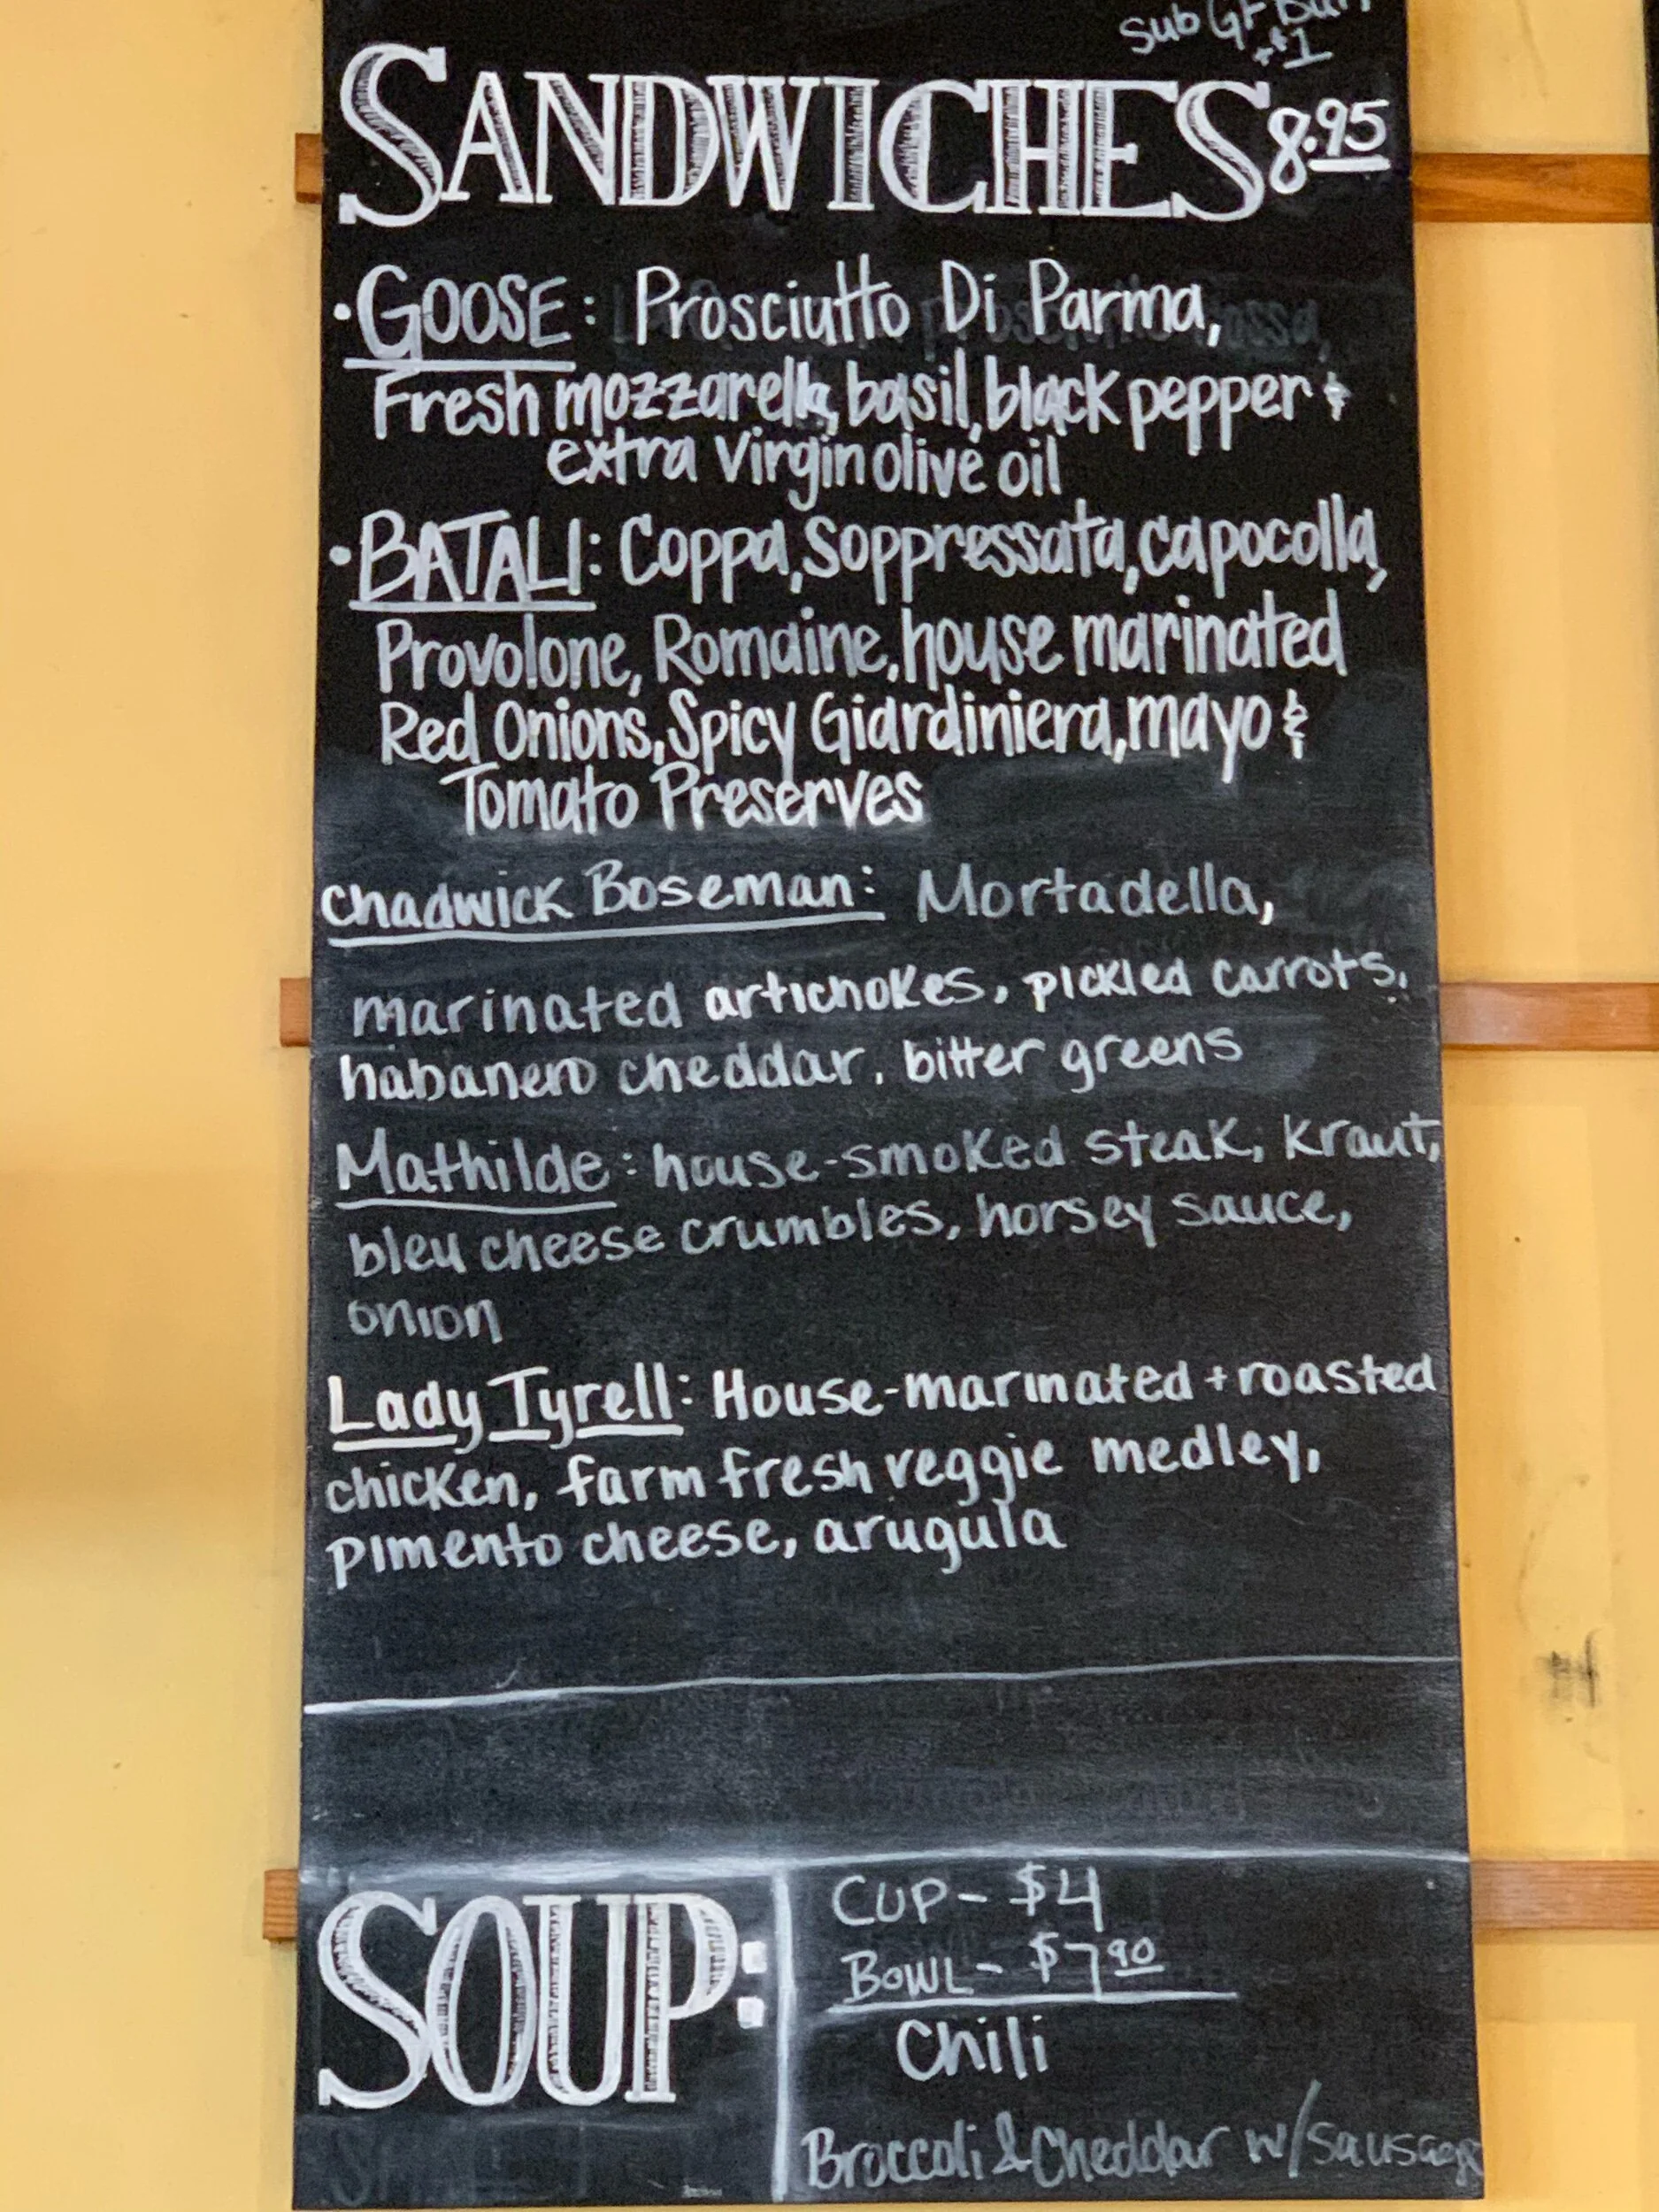 Sub GF Bun
+$1
SANDWICHES 8.95
• GOOSE: Prosciutto Di Parma,
Fresh mozzarella, basil, black pepper &
extra virgin olive oil
• BATALI: Coppa, Soppressata, capocolla,
Provolone, Romaine, house marinated
Red Onions, Spicy Giardiniera, mayo &
Tomato Preserves
Chadwick Boseman: Mortadella,
marinated artichokes, pickled carrots,
habanero cheddar, bitter greens
Mathilde: house-smoked steak, kraut,
bleu cheese crumbles, horsey sauce,
onion
Lady Tyrell: House-marinated + roasted
chicken, farm fresh veggie medley,
pimento cheese, arugula
SOUP:
CUP- $4
BOWL- $7.90
Chili
Broccoli & Cheddar w/ sausage